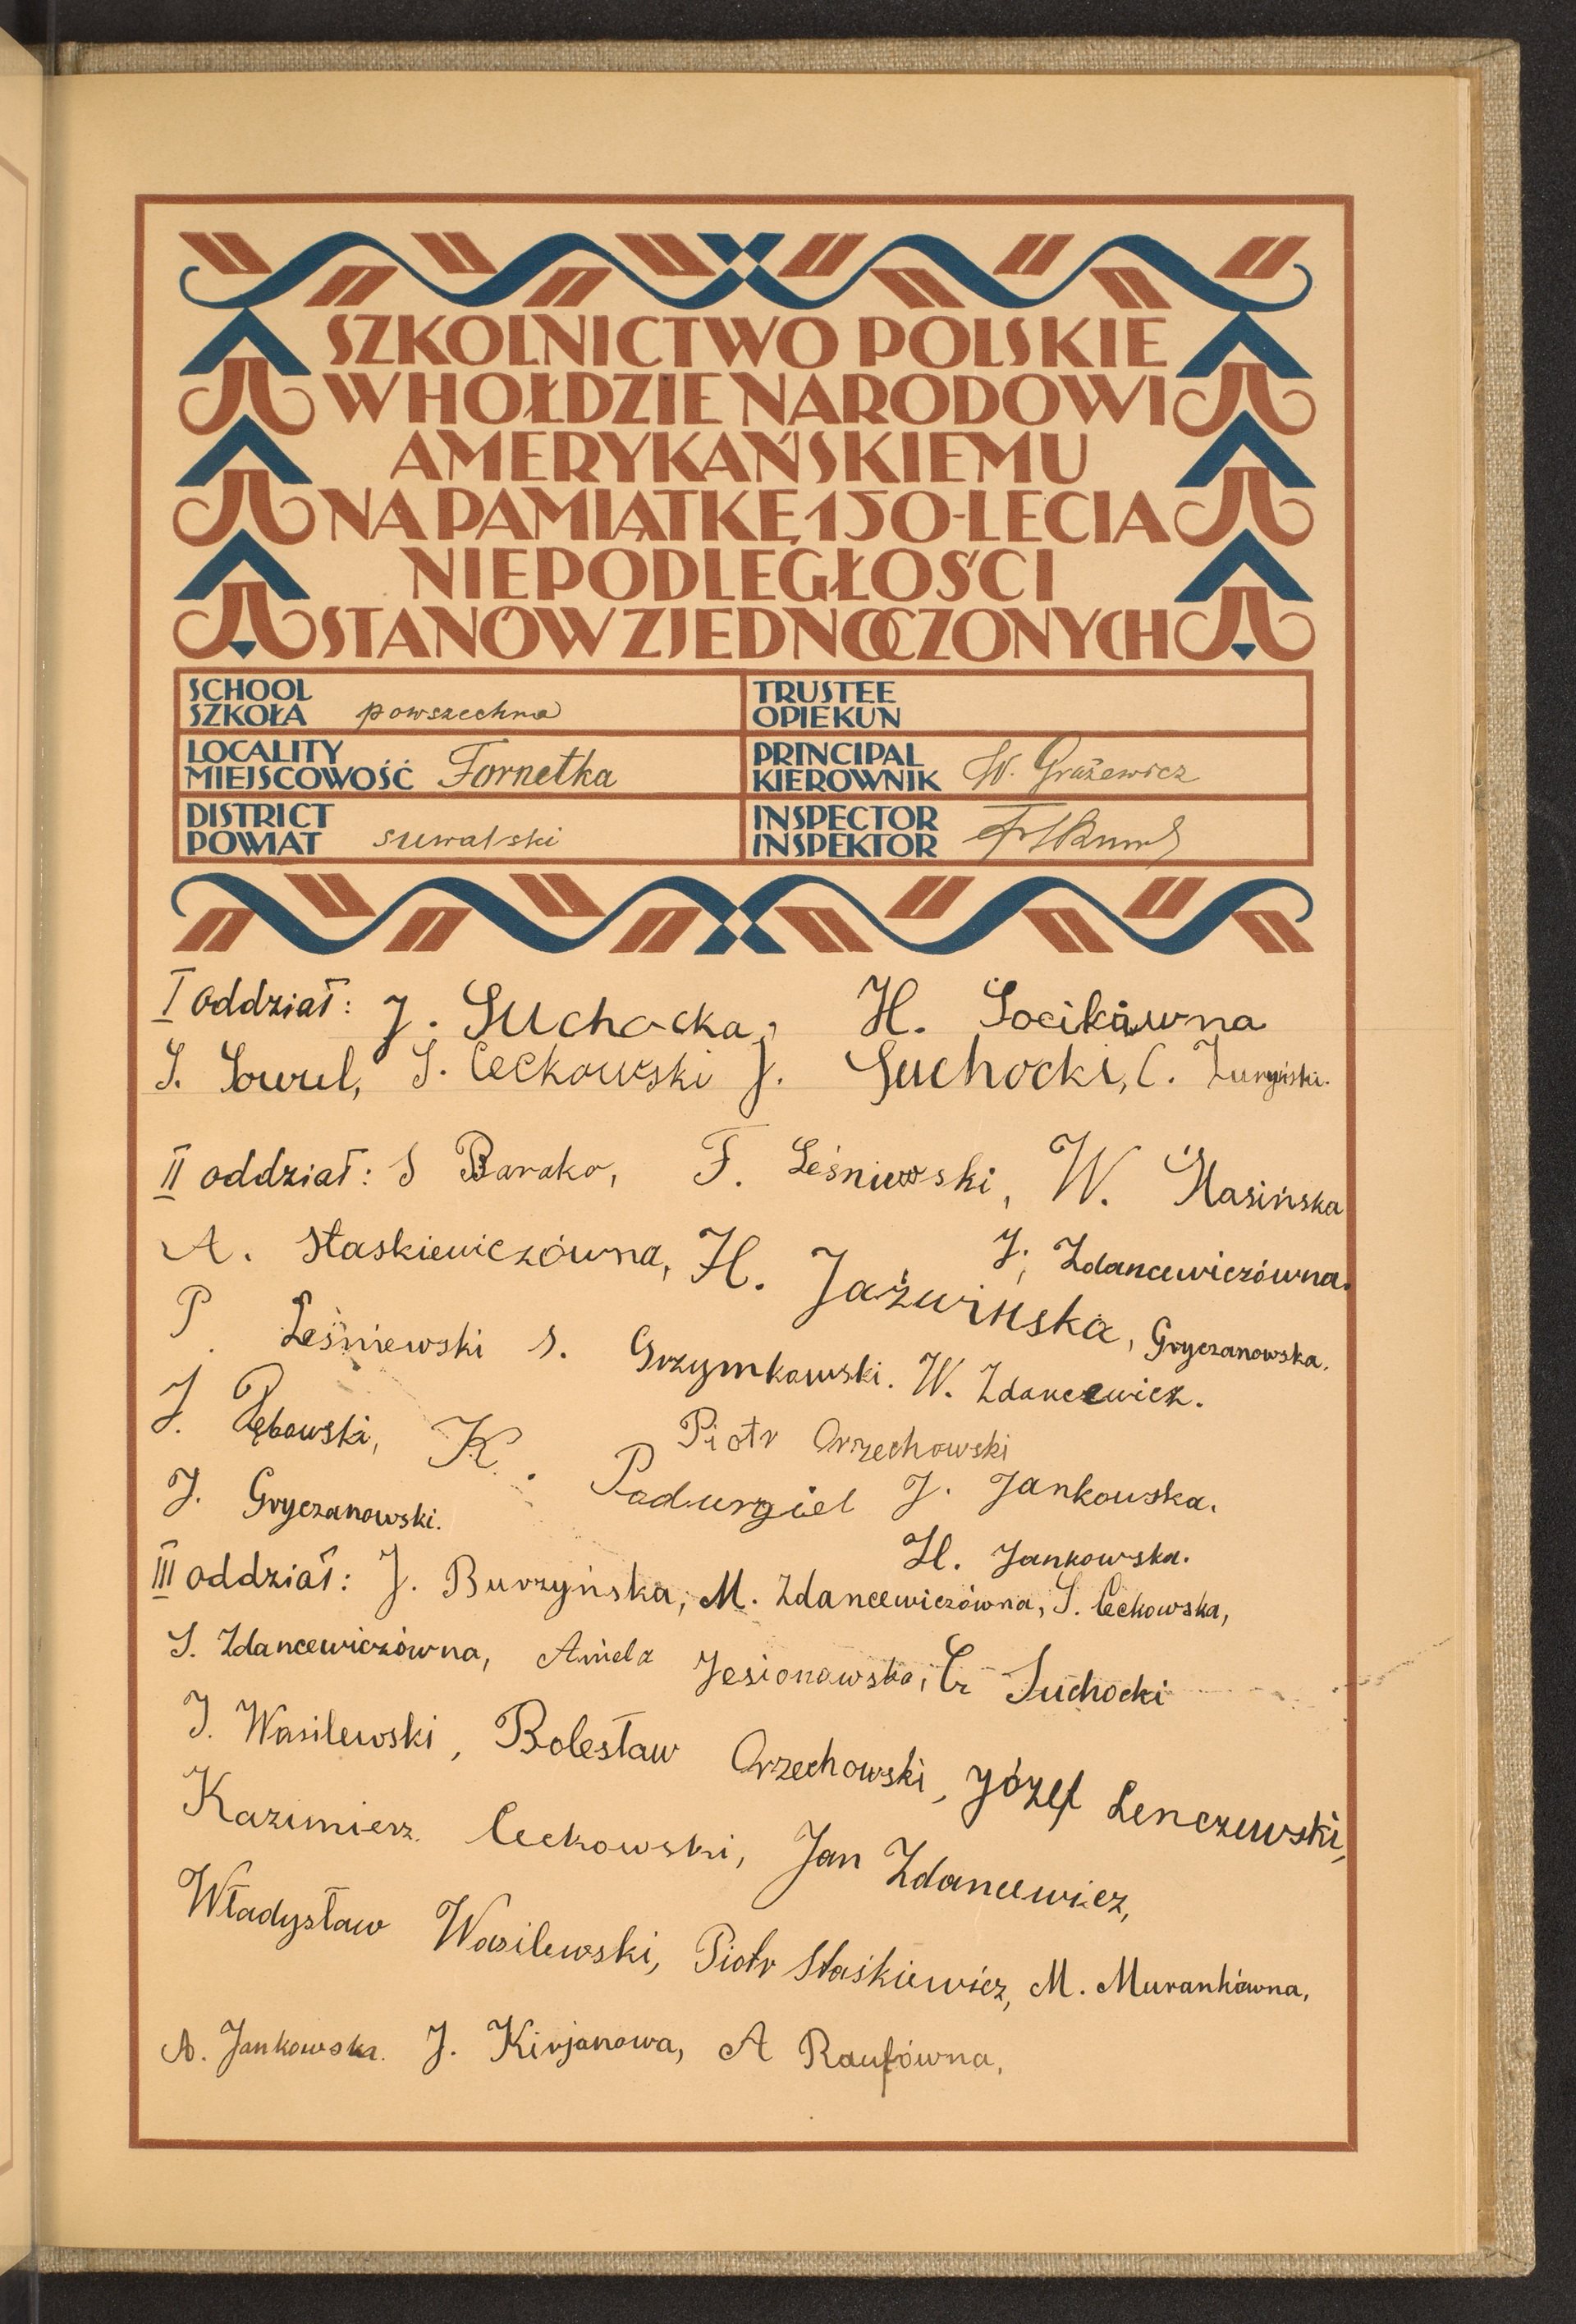 SZKOLNICTWO POLSKIE
W HOŁDZIE NARODOWI
AMERYKAŃSKIEMU
NA PAMIĄTKĘ 150-LECIA
NIEPODLEGŁOŚCI
STANÓW ZJEDNOCZONYCH
SCHOOL
SZKOŁA powszechna
TRUSTEE
OPIEKUN
LOCALITY
MIEJSCOWOŚĆ Fornetka
PRINCIPAL
KIEROWNIK W. Grażewicz
DISTRICT
POWIAT suwalski
INSPECTOR
INSPEKTOR
I oddział: J. Suchocka, H. Socikówna
S. Sowul, S. Ceckowski J. Suchocki, C.
II oddział: S Barako, F. Leśniewski, W.
A. Staskiewiczówna, H. Jaźwińska, J. Zdancewiczówna.
P. Leśniewski S. Grzymkowski. W. Zdancewicz. Gryczanowska.
J. Dębowski, K. Padurgiel Piotr Orzechowski
J. Gryczanowski. J. Jankowska.
H. Jankowska.
III oddział: J. Burzyńska, M. Zdancewiczówna, S. Ceckowska,
S. Zdancewiczówna, Aniela Jesionowska, Cz Suchocki
J. Wasilewski, Bolesław Orzechowski, Józef Lenczewski,
Kazimierz Ceckowski, Jan Zdancewicz,
Władysław Wasilewski, Piotr Staśkiewicz, M. Murankówna,
A. Jankowska. J. Kirjanowa, A Raufówna,